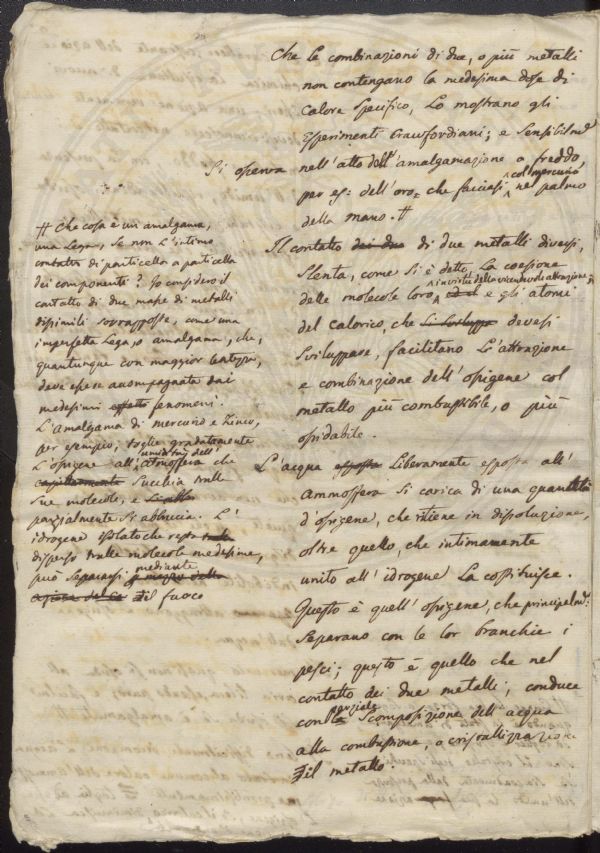 Che le combinazioni di due, o più metalli
non contengano la medesima dose di
calore specifico, lo mostrano gli
esperimenti Crawfordiani; e
Si osserva nell'atto dell'amalgamazione a freddo,
per es: dell'oro, che facciasi col mercurio nel palmo
della mano. #
Il contatto dei due di due metalli diversi,
slenta, come si è detto, la coesione
delle molecole loro in virtù della vicendevole attrazione; e gli atomi
del calorico, che si sviluppa devesi
sviluppare, facilitano l'attrazione
e combinazione dell'ossigene col
metallo più combustibile, o più
ossidabile.
L'acqua esposta liberamente esposta all'
ammosfera si carica di una quantità
d'ossigene, che ritiene in dissoluzione,
oltre quello, che intimamente
unito all'idrogene la costituisce.
Questo è quell'ossigene, che principalm:
separano con le lor branchie i
pesci; questo è quello che nel
contatto dei due metalli, conduce
con la parziale scomposizione dell'acqua
alla combustione, o cristallizzazione
il metallo.
# Che cosa è un amalgama,
una lega, se non l'intimo
contatto di particella a particella
dei componenti? Io considero il
contatto di due masse di metalli
dissimili sovrapposte, come una
imperfetta lega, o amalgama, che,
quantunque con maggior lentezza,
deve essere accompagnata dai
medesimi effetti fenomeni.
L'amalgama di mercurio e zinco,
per esempio, toglie gradatamente
l'ossigene all' umidità dell' atmosfera che
succhia tralle
sue molecole, e
parzialmente si abbrucia. L'
idrogene isolato che resta
disperso tralle molecole medesime,
può separarsi mediante
il fuoco